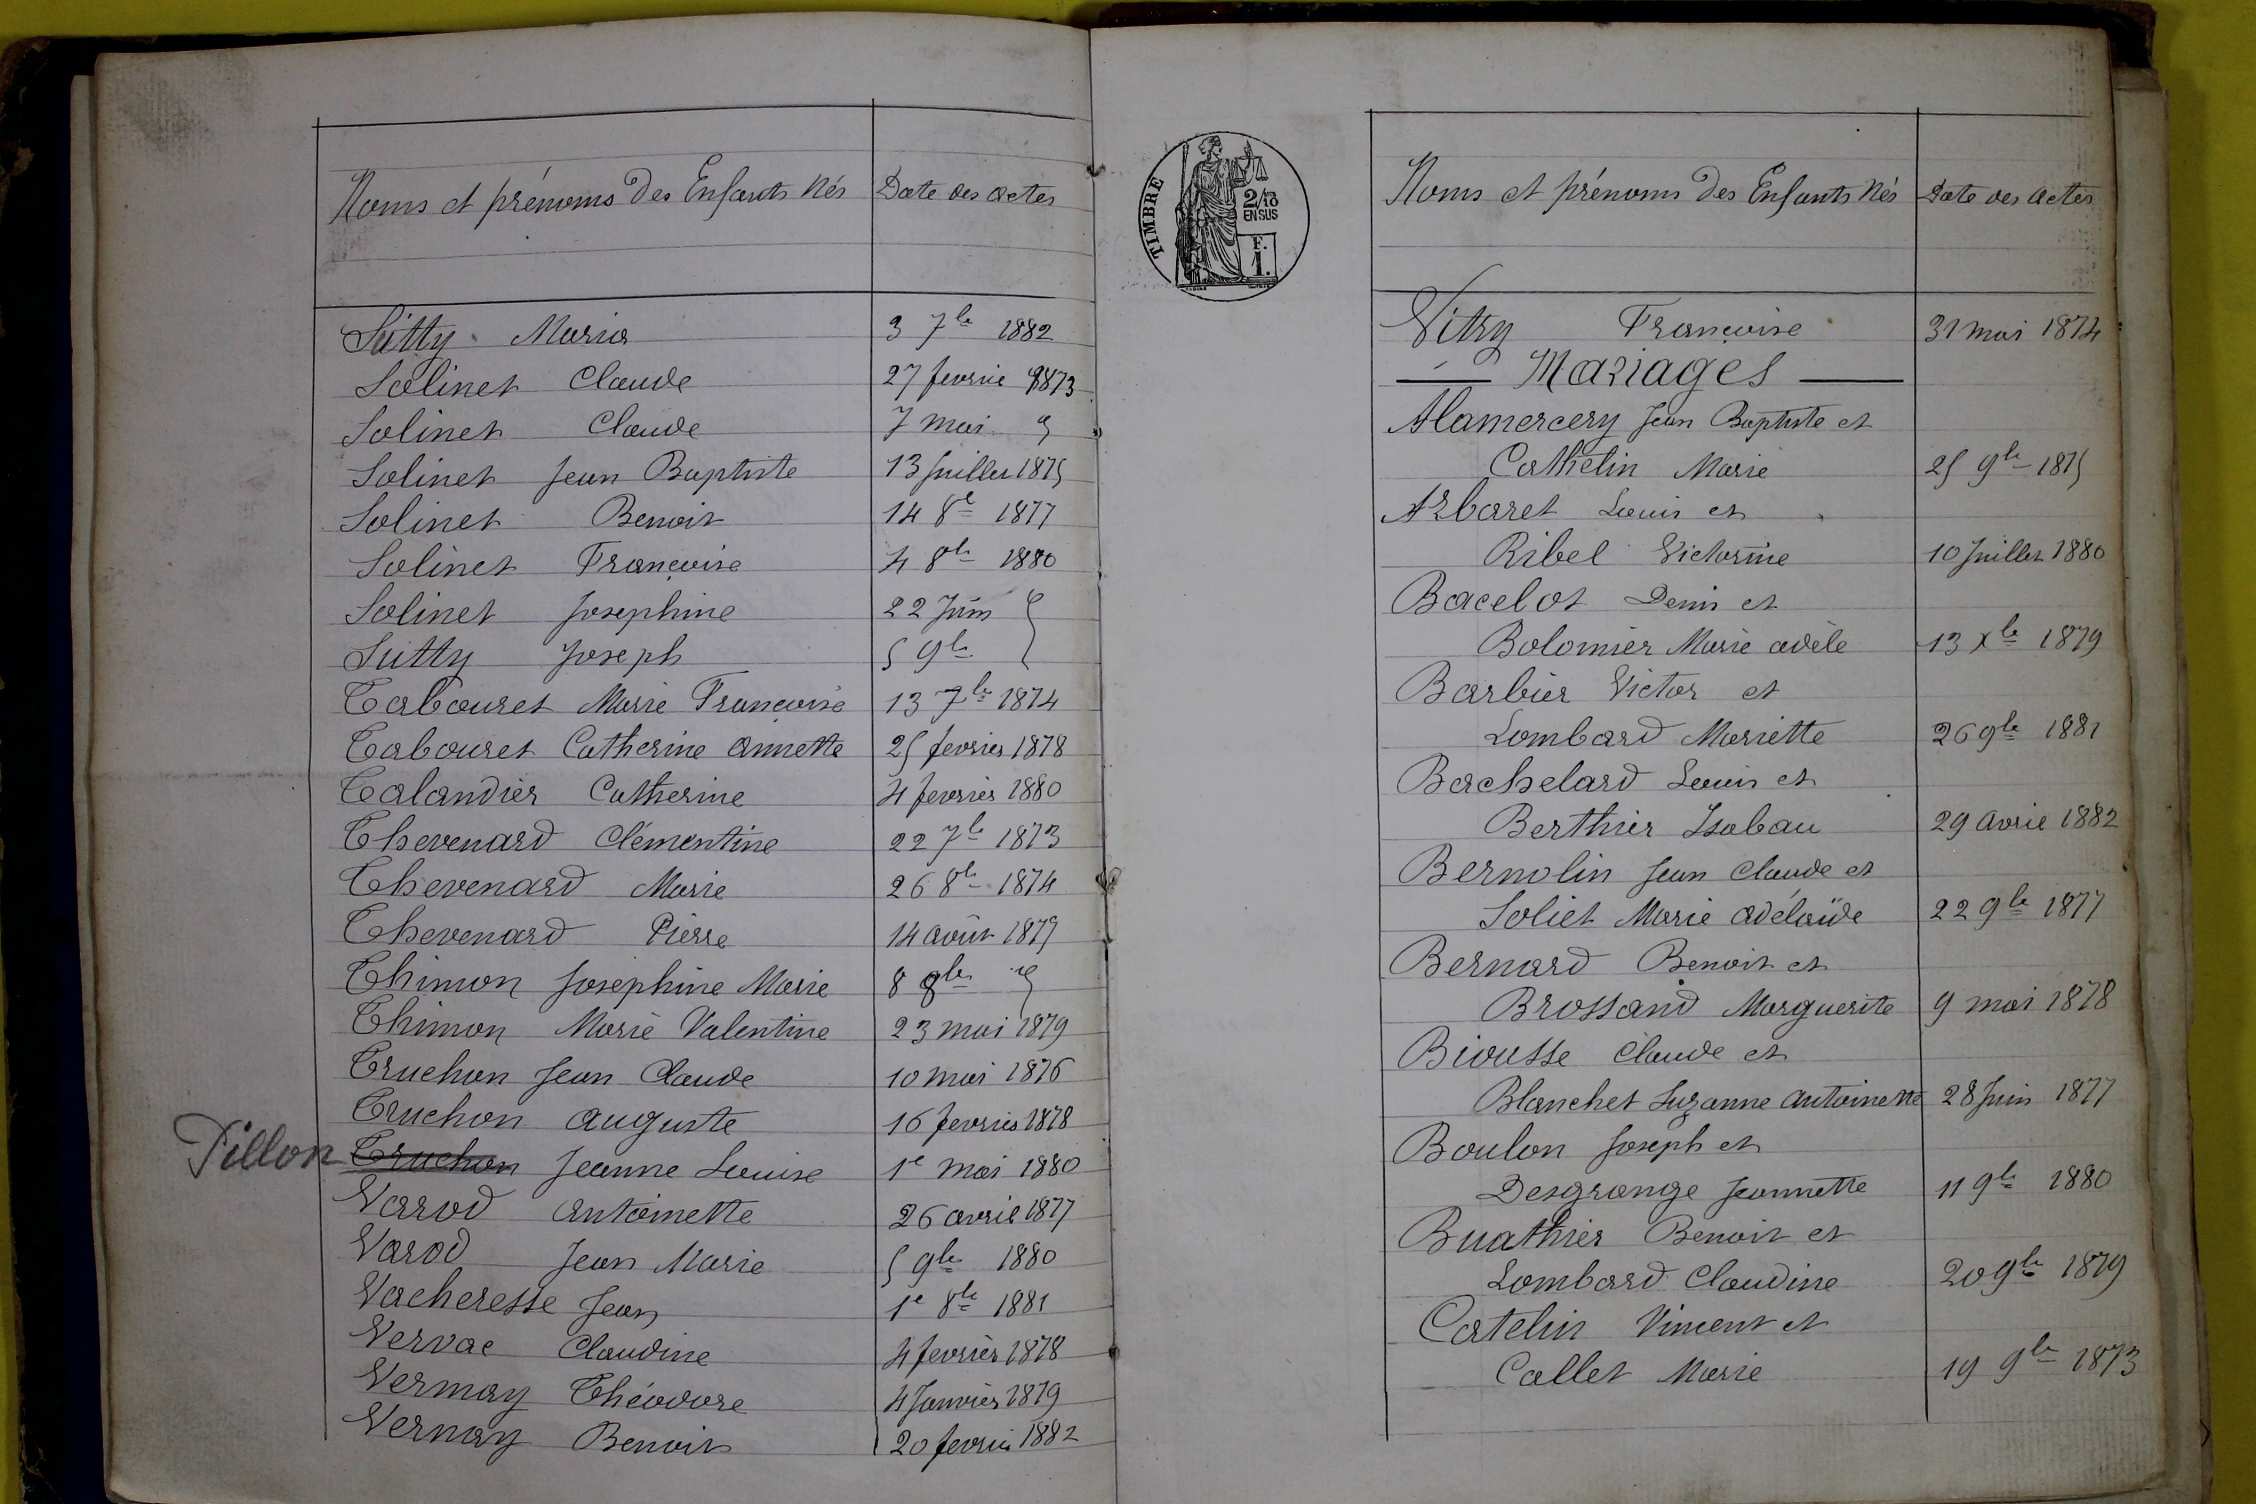 Noms et prénoms des Enfants Nés Date des actes
Sutty Maria 3 7bre 1882
Solinet Claude 27 fevrie 1873
Solinet Claude 7 mai
Solinet Jean Baptiste 13 Juillet 1875
Solinet Benoit 14 8e 1877
Solinet Françoise 4 8bre 1880
Solinet Josephine 22 Juin
Sutty Joseph 5 9bre
Tabouret Marie Françoise 13 7bre 1874
Tabouret Catherine annette 25 fevrier 1878
Talandier Catherine 4 fevrier 1880
Thevenard Clémentine 22 7bre 1873
Thevenard Marie 26 8bre 1874
Thevenard Pierre 14 août 1877
Thimon Josephine Marie 8
Thimon Marie Valentine 23 mai 1879
Truchon Jean Claude 10 mai 1876
Truchon auguste 16 fevrier 1878
Pillon Truchon Jeanne Louise 1e mai 1880
Varod antoinette 26 avril 1877
Varod Jean Marie 5 9bre 1880
Vacheresse Jean 1e 8bre 1881
Vervac Claudine 4 fevrier 1878
Vermay Théodore 4 Janvier 1879
Vernay Benoit 20 fevrie 1882
TIMBRE
2/10
EN SUS
F.
1.
Noms et prénoms des Enfants Nés Date des actes
Vitry Françoise 31 mai 1874
Mariages
Alamercery Jean Baptiste et
Cathelin Marie 25 9bre 1875
Arbaret Louis et
Ribel Victorine 10 Juillet 1880
Bacelot Denis et
Bolomier Marie adèle 13 Xbre 1879
Barbier Victor et
Lombard Mariette 26 9bre 1881
Bachelard Louis et
Berthier Isabau 29 avril 1882
Bernolin Jean Claude et
Joliet Marie adélaïde 22 9bre 1877
Bernard Benoit et
Brossand Marguerite 9 mai 1878
Biousse Claude et
Blanchet Suzanne antoinette 28 Juin 1877
Boulon Joseph et
Desgrange Jeannette 11 9bre 1880
Buathier Benoit et
Lombard Claudine 20 9bre 1879
Catelin Vincent et
Collet Marie 19 9bre 1873